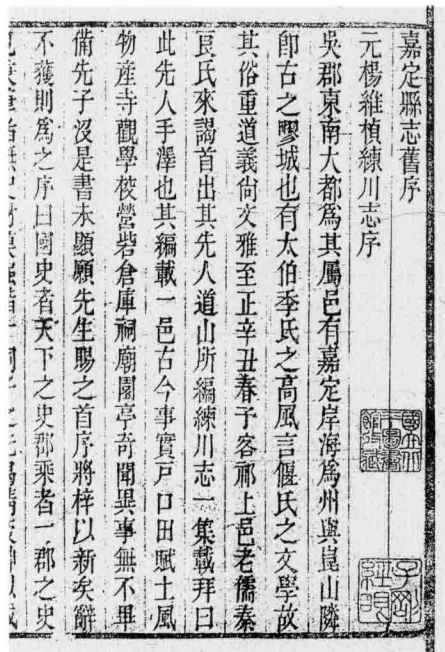 嘉定縣志舊序
元楊維楨練川志序
吳郡東南大都爲其屬邑有嘉定岸海爲州與崑山隣
卽古之婁城也有太伯季氏之高風言偃氏之文學故
其俗重道義尙文雅至正辛丑春予客祁上邑老儒秦
良氏來謁首出其先人道山所編練川志一集載拜曰
此先人手澤也其編載一邑古今事實戸口田賦土風
物產寺觀學校營砦倉庫祠廟園亭奇聞異事無不畢
備先子沒是書本顯願先生賜之首序將梓以新矣辭
不獲則爲之序曰國史者天下之史郡乘者一郡之史